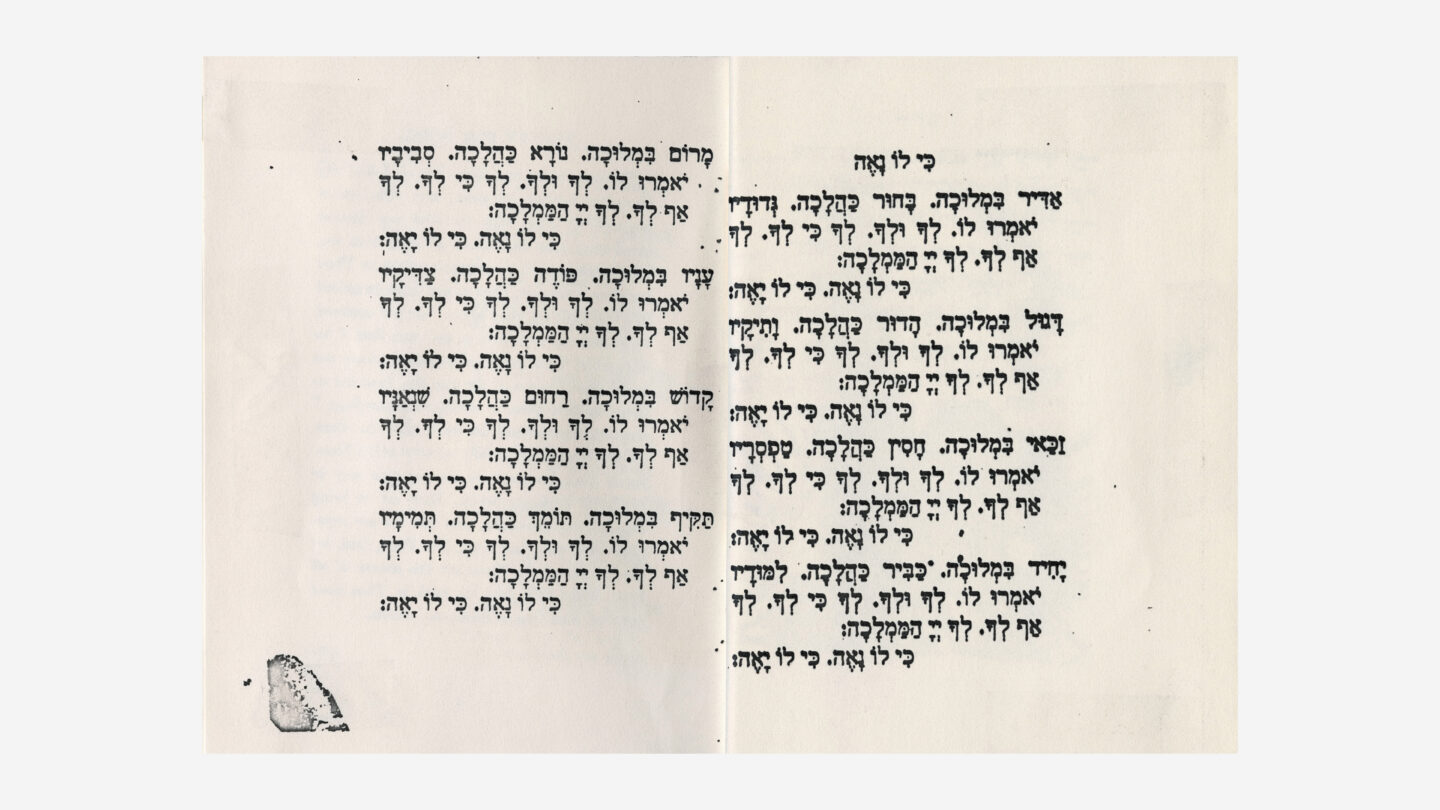 כִּי לוֹ נָאֶה
אַדִּיר בִּמְלוּכָה. בָּחוּר כַּהֲלָכָה. גְּדוּדָיו
יֹאמְרוּ לוֹ. לְךָ וּלְךָ. לְךָ כִּי לְךָ. לְךָ
אַף לְךָ. לְךָ יְיָ הַמַּמְלָכָה:
כִּי לוֹ נָאֶה. כִּי לוֹ יָאֶה:
דָּגוּל בִּמְלוּכָה. הָדוּר כַּהֲלָכָה. וָתִיקָיו
יֹאמְרוּ לוֹ. לְךָ וּלְךָ. לְךָ כִּי לְךָ. לְךָ
אַף לְךָ. לְךָ יְיָ הַמַּמְלָכָה:
כִּי לוֹ נָאֶה. כִּי לוֹ יָאֶה:
זַכַּאי בִּמְלוּכָה. חָסִין כַּהֲלָכָה. טַפְסְרָיו
יֹאמְרוּ לוֹ. לְךָ וּלְךָ. לְךָ כִּי לְךָ. לְךָ
אַף לְךָ. לְךָ יְיָ הַמַּמְלָכָה:
כִּי לוֹ נָאֶה. כִּי לוֹ יָאֶה:
יָחִיד בִּמְלוּכָה. כַּבִּיר כַּהֲלָכָה. לִמּוּדָיו
יֹאמְרוּ לוֹ. לְךָ וּלְךָ. לְךָ כִּי לְךָ. לְךָ
אַף לְךָ. לְךָ יְיָ הַמַּמְלָכָה:
כִּי לוֹ נָאֶה. כִּי לוֹ יָאֶה:
מָרוֹם בִּמְלוּכָה. נוֹרָא כַּהֲלָכָה. סְבִיבָיו
יֹאמְרוּ לוֹ. לְךָ וּלְךָ. לְךָ כִּי לְךָ. לְךָ
אַף לְךָ. לְךָ יְיָ הַמַּמְלָכָה:
כִּי לוֹ נָאֶה. כִּי לוֹ יָאֶה:
עָנָיו בִּמְלוּכָה. פּוֹדֶה כַּהֲלָכָה. צַדִּיקָיו
יֹאמְרוּ לוֹ. לְךָ וּלְךָ. לְךָ כִּי לְךָ. לְךָ
אַף לְךָ. לְךָ יְיָ הַמַּמְלָכָה:
כִּי לוֹ נָאֶה. כִּי לוֹ יָאֶה:
קָדוֹשׁ בִּמְלוּכָה. רַחוּם כַּהֲלָכָה. שִׁנְאַנָּיו
יֹאמְרוּ לוֹ. לְךָ וּלְךָ. לְךָ כִּי לְךָ. לְךָ
אַף לְךָ. לְךָ יְיָ הַמַּמְלָכָה:
כִּי לוֹ נָאֶה. כִּי לוֹ יָאֶה:
תַּקִּיף בִּמְלוּכָה. תּוֹמֵךְ כַּהֲלָכָה. תְּמִימָיו
יֹאמְרוּ לוֹ. לְךָ וּלְךָ. לְךָ כִּי לְךָ. לְךָ
אַף לְךָ. לְךָ יְיָ הַמַּמְלָכָה:
כִּי לוֹ נָאֶה. כִּי לוֹ יָאֶה: